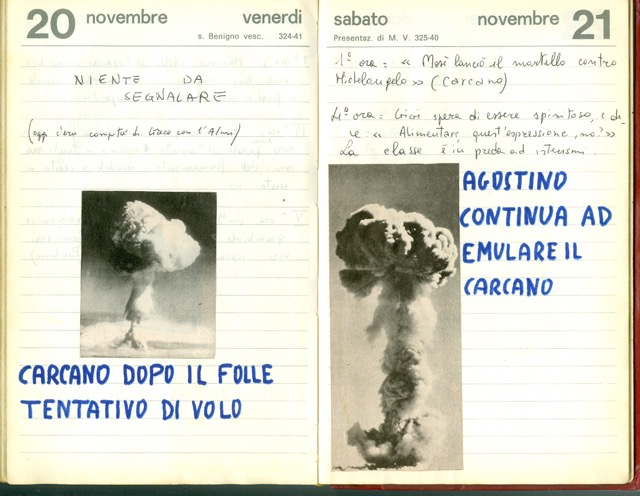 20 novembre venerdi
s. Benigno vesc. 324-41
NIENTE DA
SEGNALARE
(oggi c'era compito di Greco con l'Alunni)
CARCANO DOPO IL FOLLE
TENTATIVO DI VOLO
sabato novembre 21
Presentaz. di M. V. 325-40
1ª ora: « Mosè lanciò il martello contro
Michelangelo » (Carcano)
4ª ora: spera di essere spiritoso, e di-
re: « Alimentare, quest'espressione, no? »
La classe è in preda ad isterismi.
AGOSTINO
CONTINUA AD
EMULARE IL
CARCANO